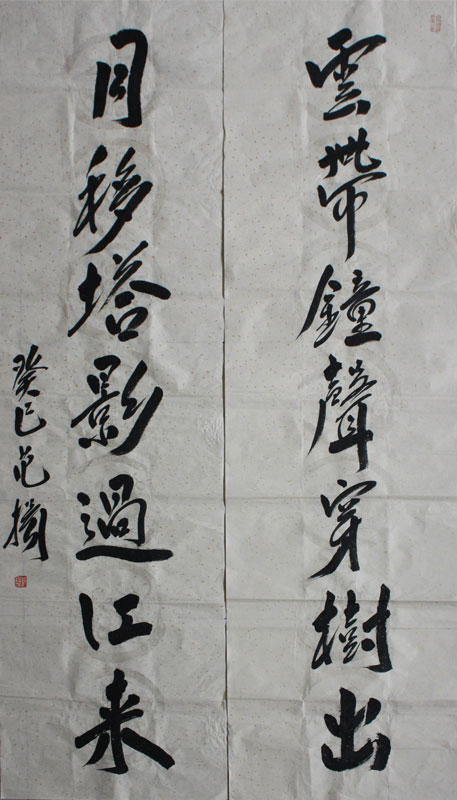 雲帶鐘聲穿樹出
月移塔影過江来
癸巳范